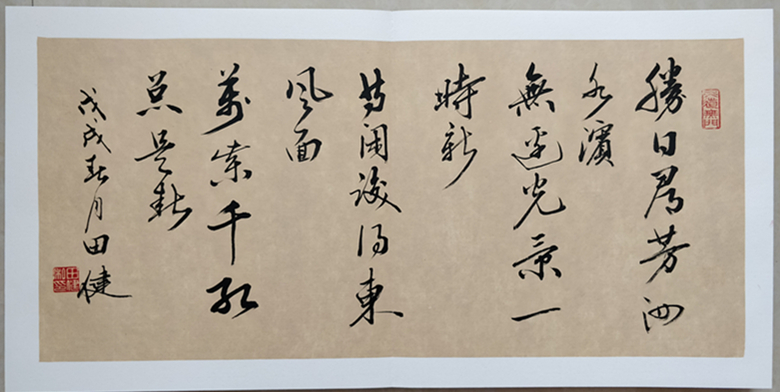 勝日尋芳泗
水濱
無邊光景一
時新
等閑識得東
風面
萬紫千紅
總是春
戊戌春月田健